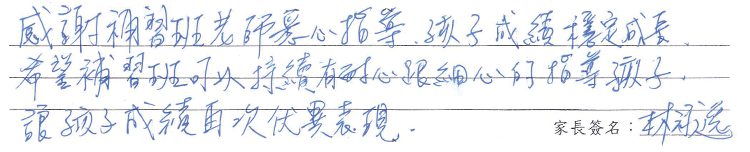 感謝補習班老師悉心指導、孩子成績穩定成長、
希望補習班可以持續有耐心跟細心的指導孩子.
讓孩子成績再次優異表現.
家長簽名：林